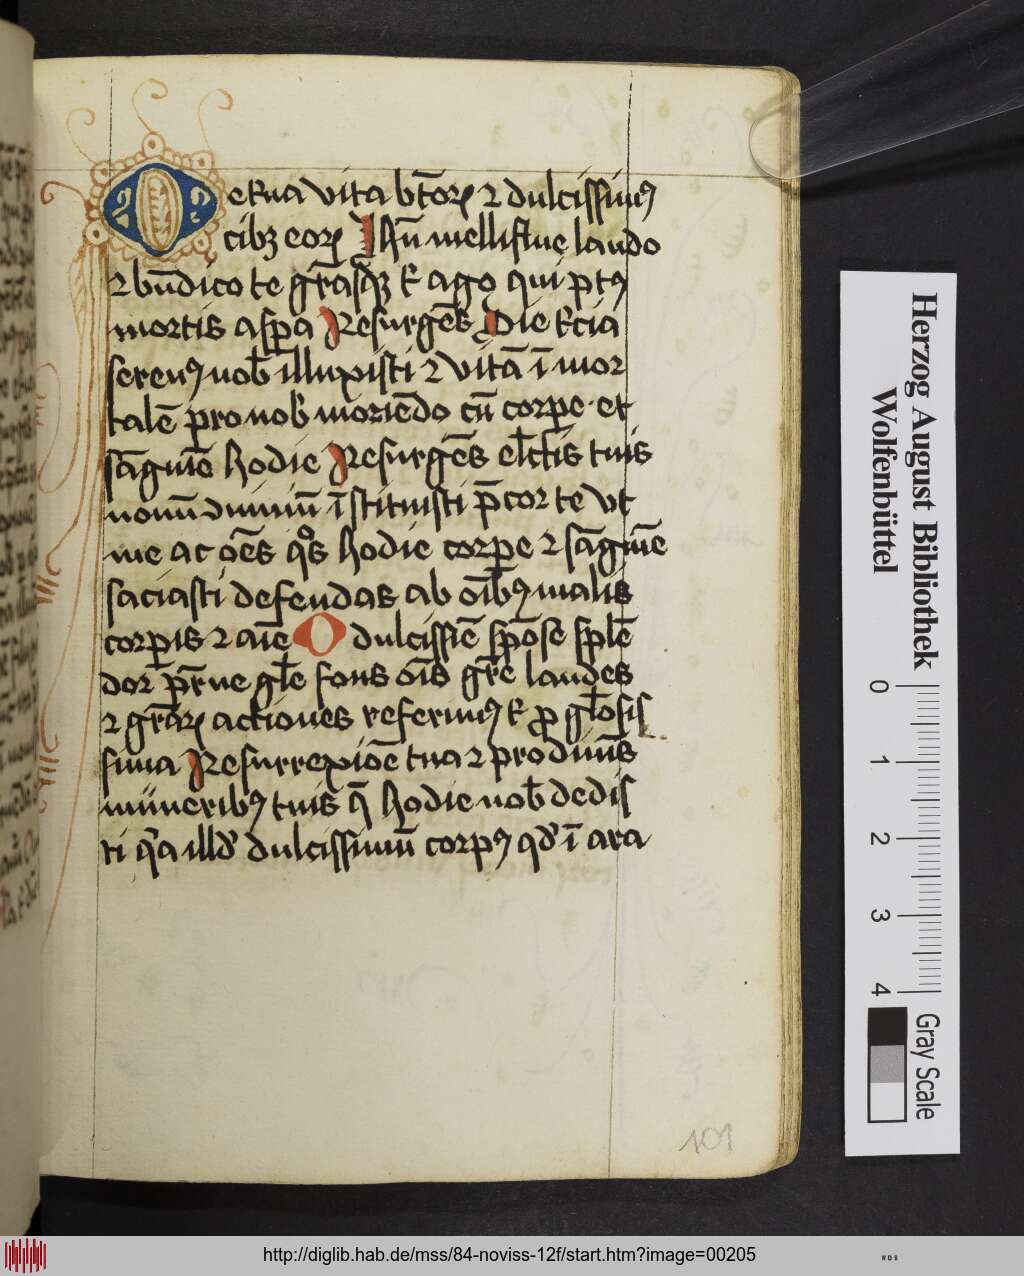 O eterna vita bt̄oꝝ ⁊ dulcissimꝰ
cibꝫ eoꝝ Ihū melliflue laudo
⁊ bn̄dico te grāsqꝫ t̄ ago qui ptꝰ
mortis aspa Resurgēs Die t̄cia
serenꝰ nob̄ illuxisti ⁊ vitā ī mor
talē pro nob̄ moriēdo cū corpe et
sāguīe hodie Resurgēs elc̄tis tuis
nouū diuinū īstituisti p̄cor te vt
me ac oēs qͦs hodie corpe ⁊ sāguīe
saciasti defendas ab oībꝰ malis
corpis ⁊ aīe O dulcissīe spōse splē
dor pr̄ne glē fons oīs gr̄e laudes
⁊ grāꝝ actiones referimꝰ t̄ ꝓ gl̄osis
sima Resurrexiōe tua ⁊ pro diuīs
muneribꝰ tuis q̄ hodie nob̄ dedis
ti qͣ illd̄ dulcissimū corpꝰ qd̄ ī ara
101
Herzog August Bibliothek
Wolfenbüttel
0 1 2 3 4
Gray Scale
http://diglib.hab.de/mss/84-noviss-12f/start.htm?image=00205